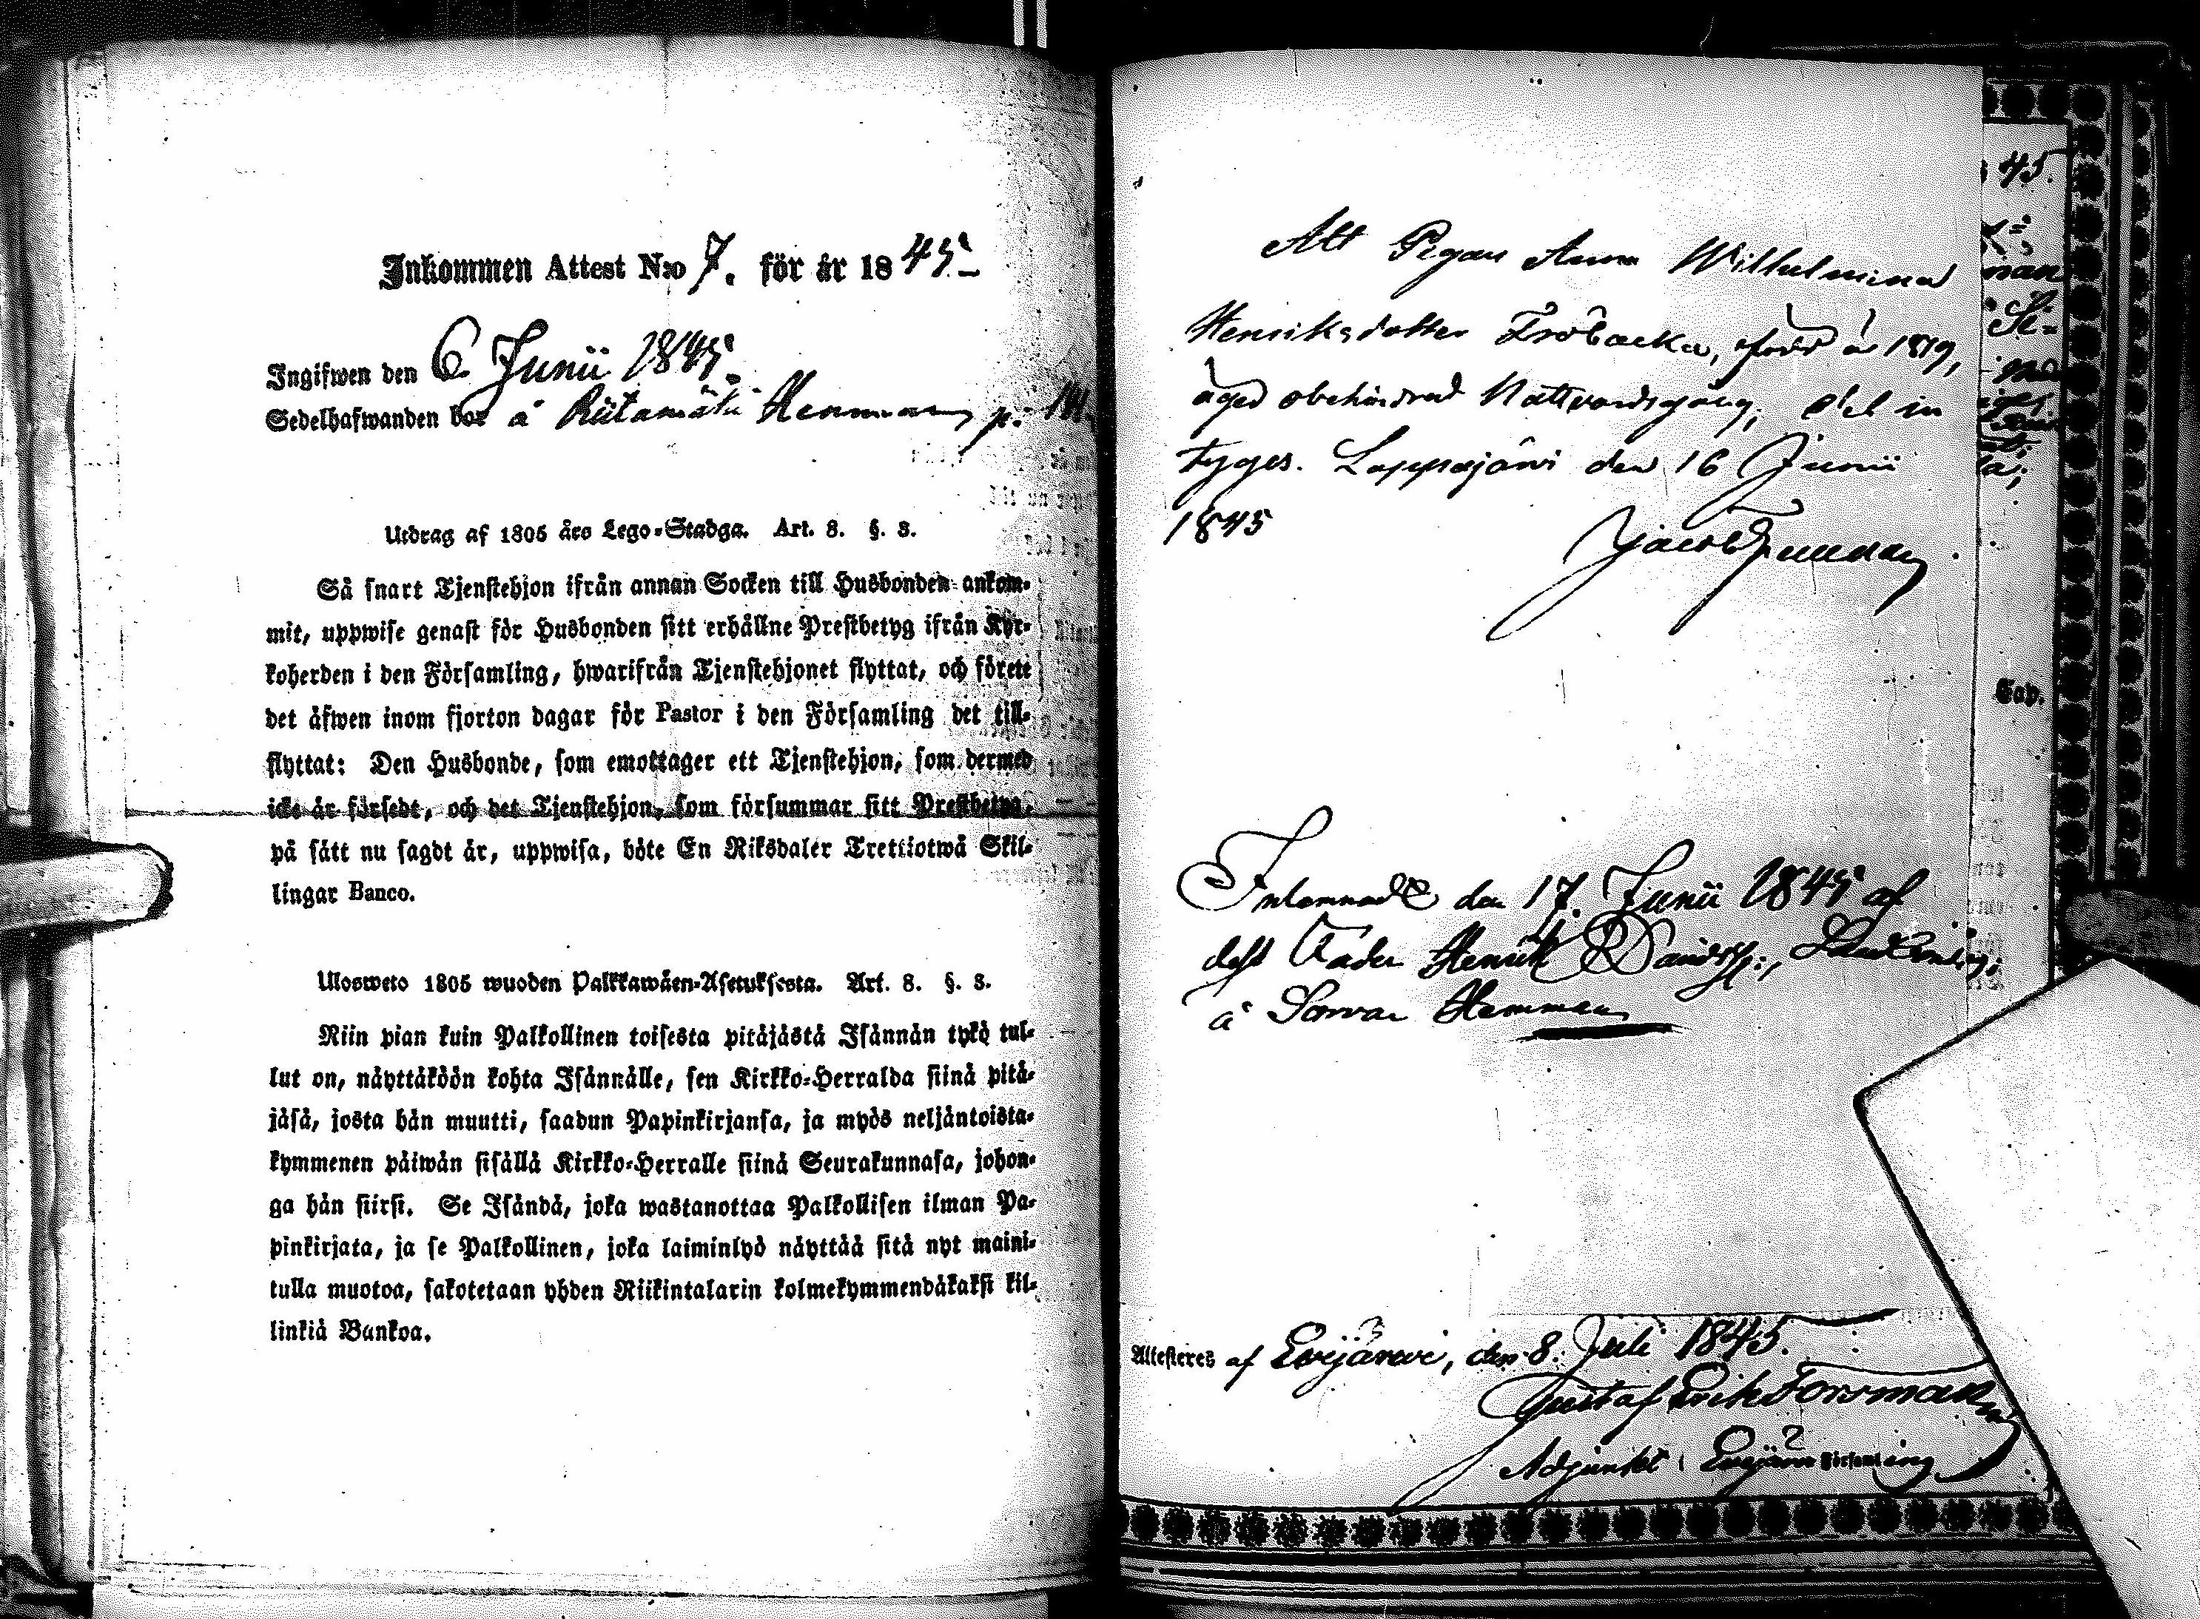 Inkommen Attest N:o 7. för år 1845
Ingifwen den 6 Junii 1845.
Sedelhafwanden bor å Riitamäki Hemman, p.
Utdrag af 1805 års Lego-Stadga. Art. 8. §. 3.
Så snart Tjenstehjon ifrån annan Socken till Husbonden ankom-
mit, uppwise genast för Husbonden sitt erhållne Prestbetyg ifrån Kyr-
koherden i den Församling, hwarifrån Tjenstehjonet flyttat, och förete
det äfwen inom fjorton dagar för Pastor i den Församling det till-
flyttat: Den Husbonde, som emottager ett Tjenstehjon, som dermed
icke är försedt, och det Tjenstehjon, som försummar sitt Prestbetyg,
på sätt nu sagdt är, uppwisa, böte En Riksdaler Trettiotwå Skil-
lingar Banco.
Ulosweto 1805 wuoden Palkkawäen-Asetuksesta. Art. 8. §. 3.
Niin pian kuin Palkollinen toisesta pitäjästä Isännän tykö tul-
lut on, näyttäköön kohta Isännälle, sen Kirkko-Herralda siinä pitä-
jäsä, josta hän muutti, saadun Papinkirjansa, ja myös neljäntoista-
kymmenen päiwän sisällä Kirkko-Herralle siinä Seurakunnasa, johon-
ga hän siirsi. Se Isändä, joka wastanottaa Palkollisen ilman Pa-
pinkirjata, ja se Palkollinen, joka laiminlyö näyttää sitä nyt maini-
tulla muotoa, sakotetaan yhden Riikintalarin kolmekymmendäkaksi kil-
linkiä Bankoa.
Att Pigan Anna Wilhelmina
Henriksdotter Fröbacka, född år 1819,
äger obehindrad Nattvardsgång, det in
tyges. Lappajärvi den 16 Junii
1845
Inlemnadt den 17 Junii 1845 af
dess Fader Henrik Davidss:,
å Sorvar Hemman
Attesteres af Evijärvi, den 8. Juli 1845.
Gustaf Erik Forsman
Adjunkt i Evijärvi Församling
45.
Cap.